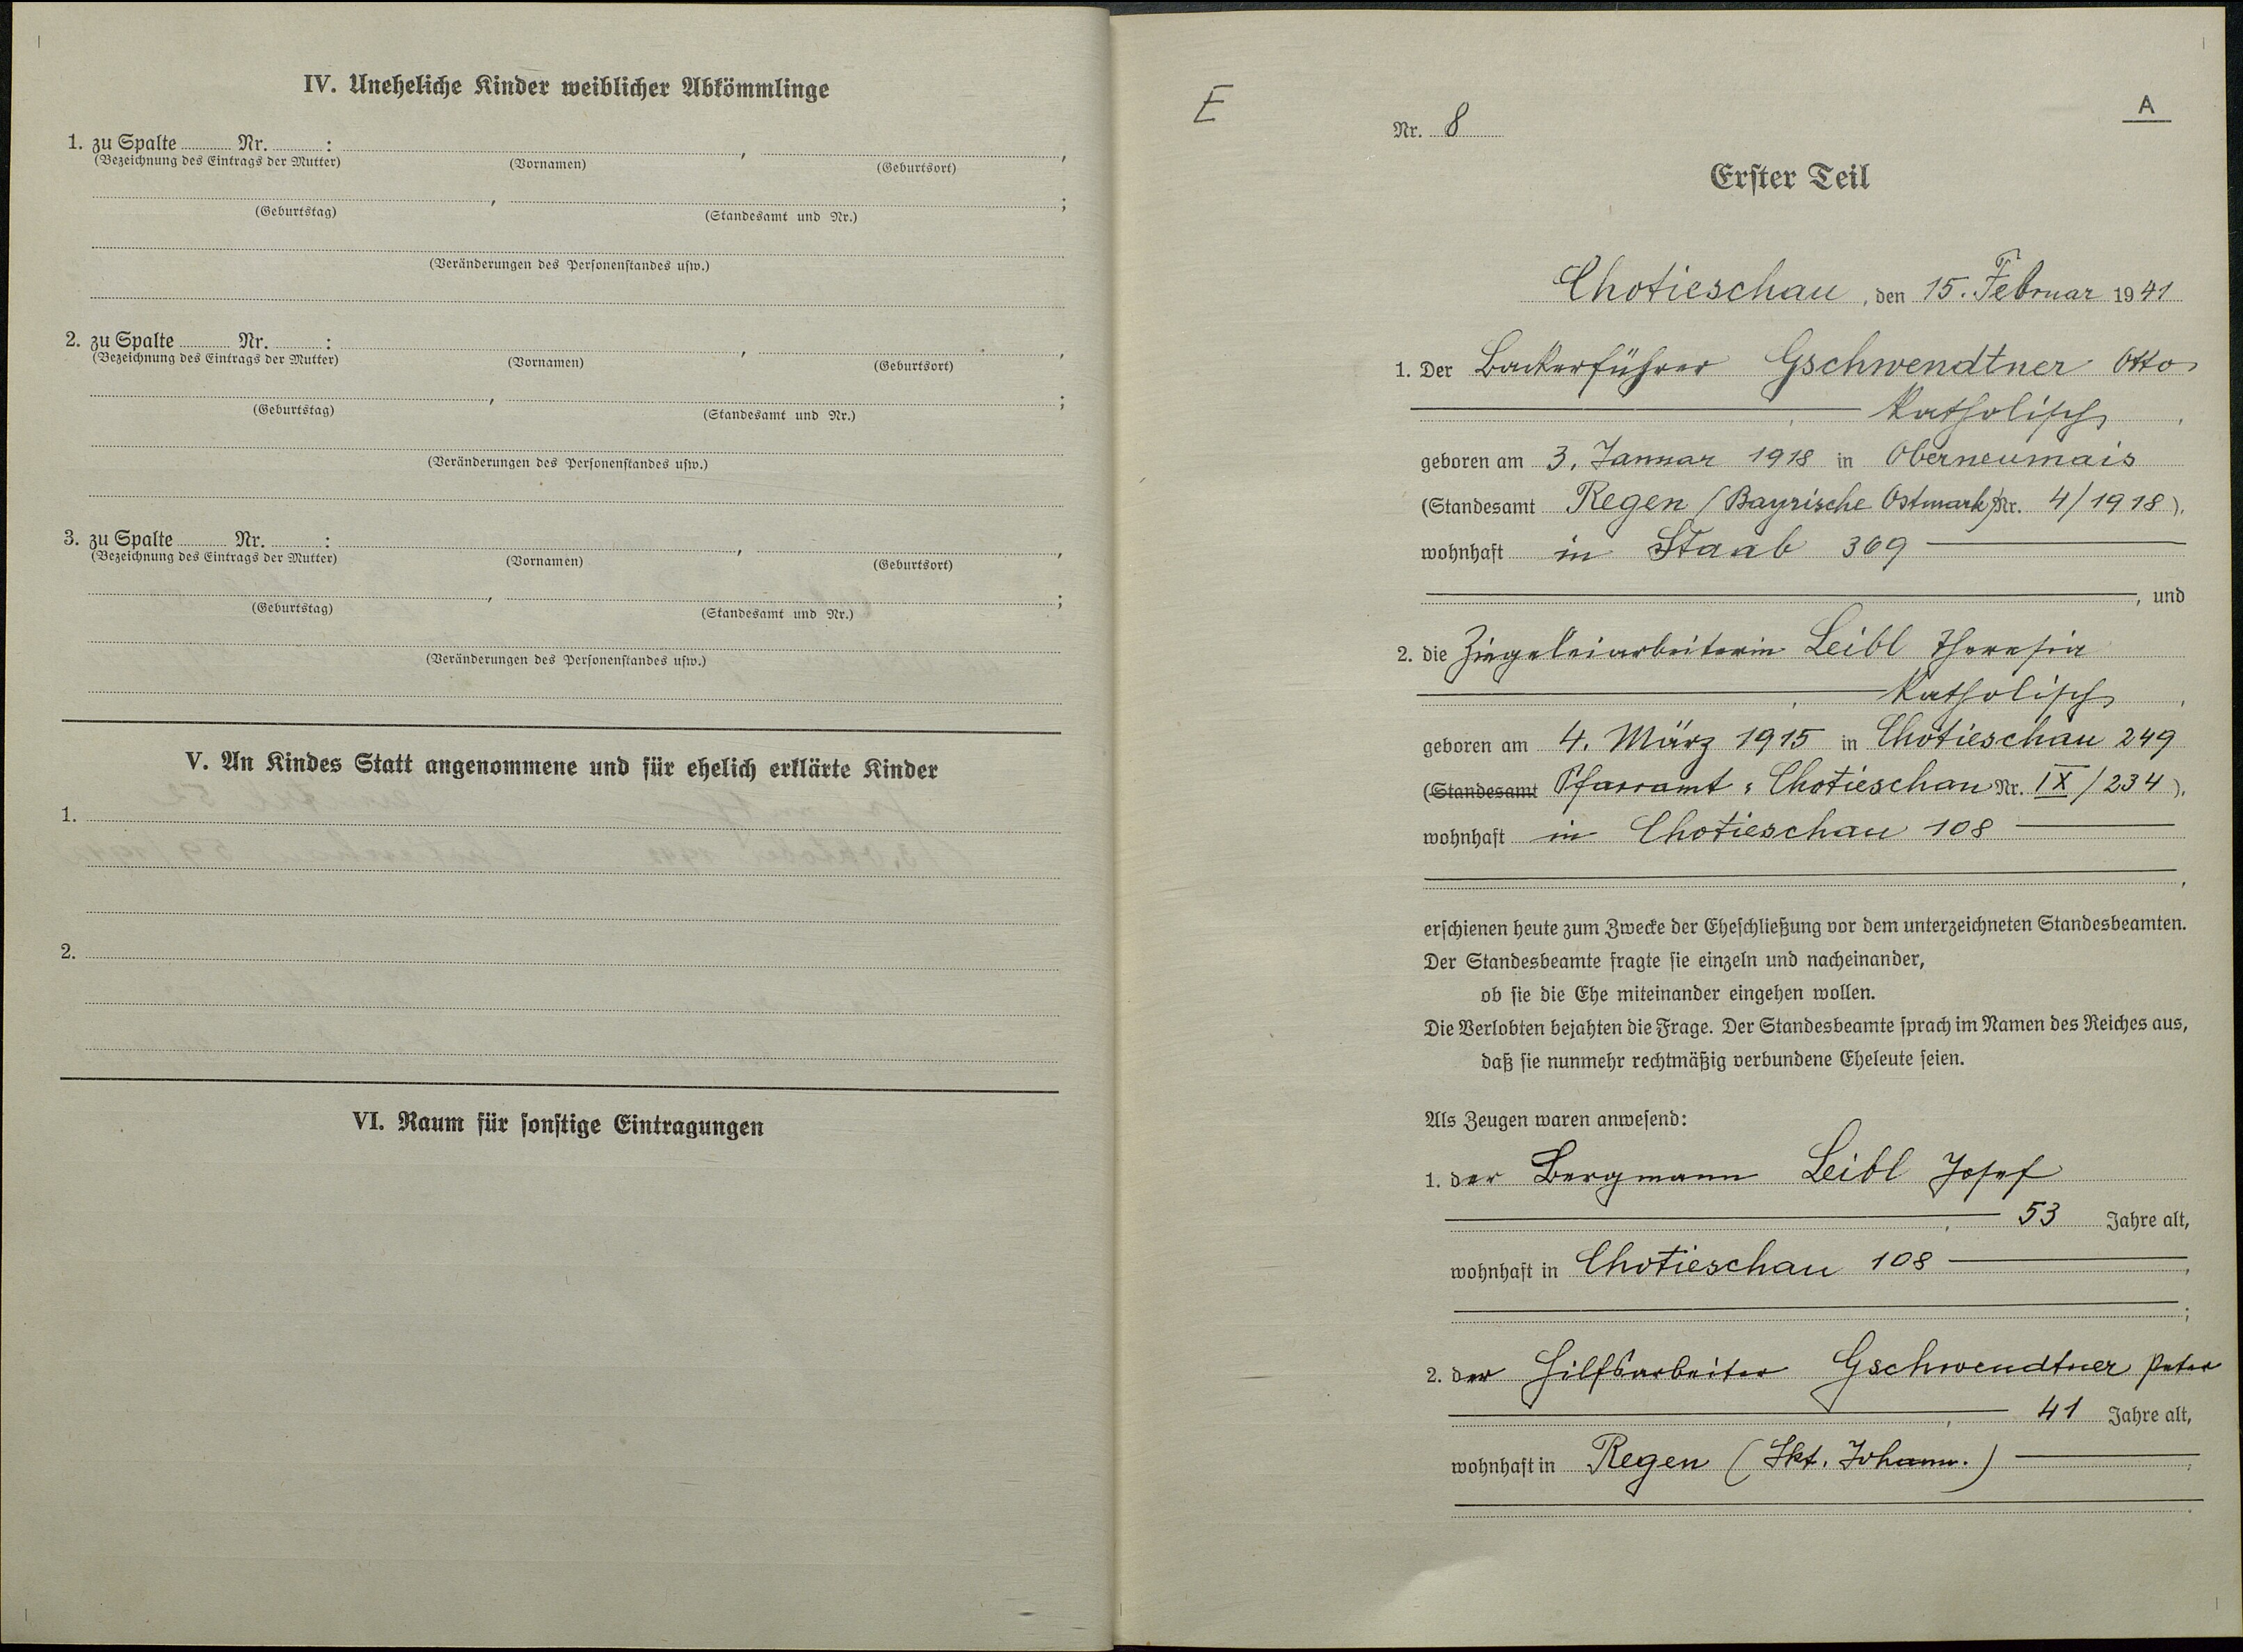 IV. Uneheliche Kinder weiblicher Abkömmlinge
1. zu Spalte Nr. : , ,
(Bezeichnung des Eintrags der Mutter) (Vornamen) (Geburtsort)
, ;
(Geburtstag) (Standesamt und Nr.)
(Veränderungen des Personenstandes usw.)
2. zu Spalte Nr. : , ,
(Bezeichnung des Eintrags der Mutter) (Vornamen) (Geburtsort)
, ;
(Geburtstag) (Standesamt und Nr.)
(Veränderungen des Personenstandes usw.)
3. zu Spalte Nr. : , ,
(Bezeichnung des Eintrags der Mutter) (Vornamen) (Geburtsort)
, ;
(Geburtstag) (Standesamt und Nr.)
(Veränderungen des Personenstandes usw.)
V. An Kindes Statt angenommene und für ehelich erklärte Kinder
1.
2.
VI. Raum für sonstige Eintragungen
E
A
Nr. 8
Erster Teil
Chotieschau, den 15. Februar 1941
1. Der Gschwendtner Otto
, katholisch,
geboren am 3. Januar 1918 in Oberneumais
(Standesamt Regen (Bayrische Ostmark) Nr. 4/1918).
wohnhaft in Staab 369
, und
2. die Ziegeleiarbeiterin Leibl Theresia
, katholisch,
geboren am 4. März 1915 in Chotieschau 249
(Standesamt Pfarramt: Chotieschau Nr. IX/234).
wohnhaft in Chotieschau 108
,
erschienen heute zum Zwecke der Eheschließung vor dem unterzeichneten Standesbeamten.
Der Standesbeamte fragte sie einzeln und nacheinander,
ob sie die Ehe miteinander eingehen wollen.
Die Verlobten bejahten die Frage. Der Standesbeamte sprach im Namen des Reiches aus,
daß sie nunmehr rechtmäßig verbundene Eheleute seien.
Als Zeugen waren anwesend:
1. der Bergmann Leibl Josef
, 53 Jahre alt,
wohnhaft in Chotieschau 108 ,
;
2. der Hilfsarbeiter Gschwendtner Peter
, 41 Jahre alt,
wohnhaft in Regen (Skt. Johann.) ,
.